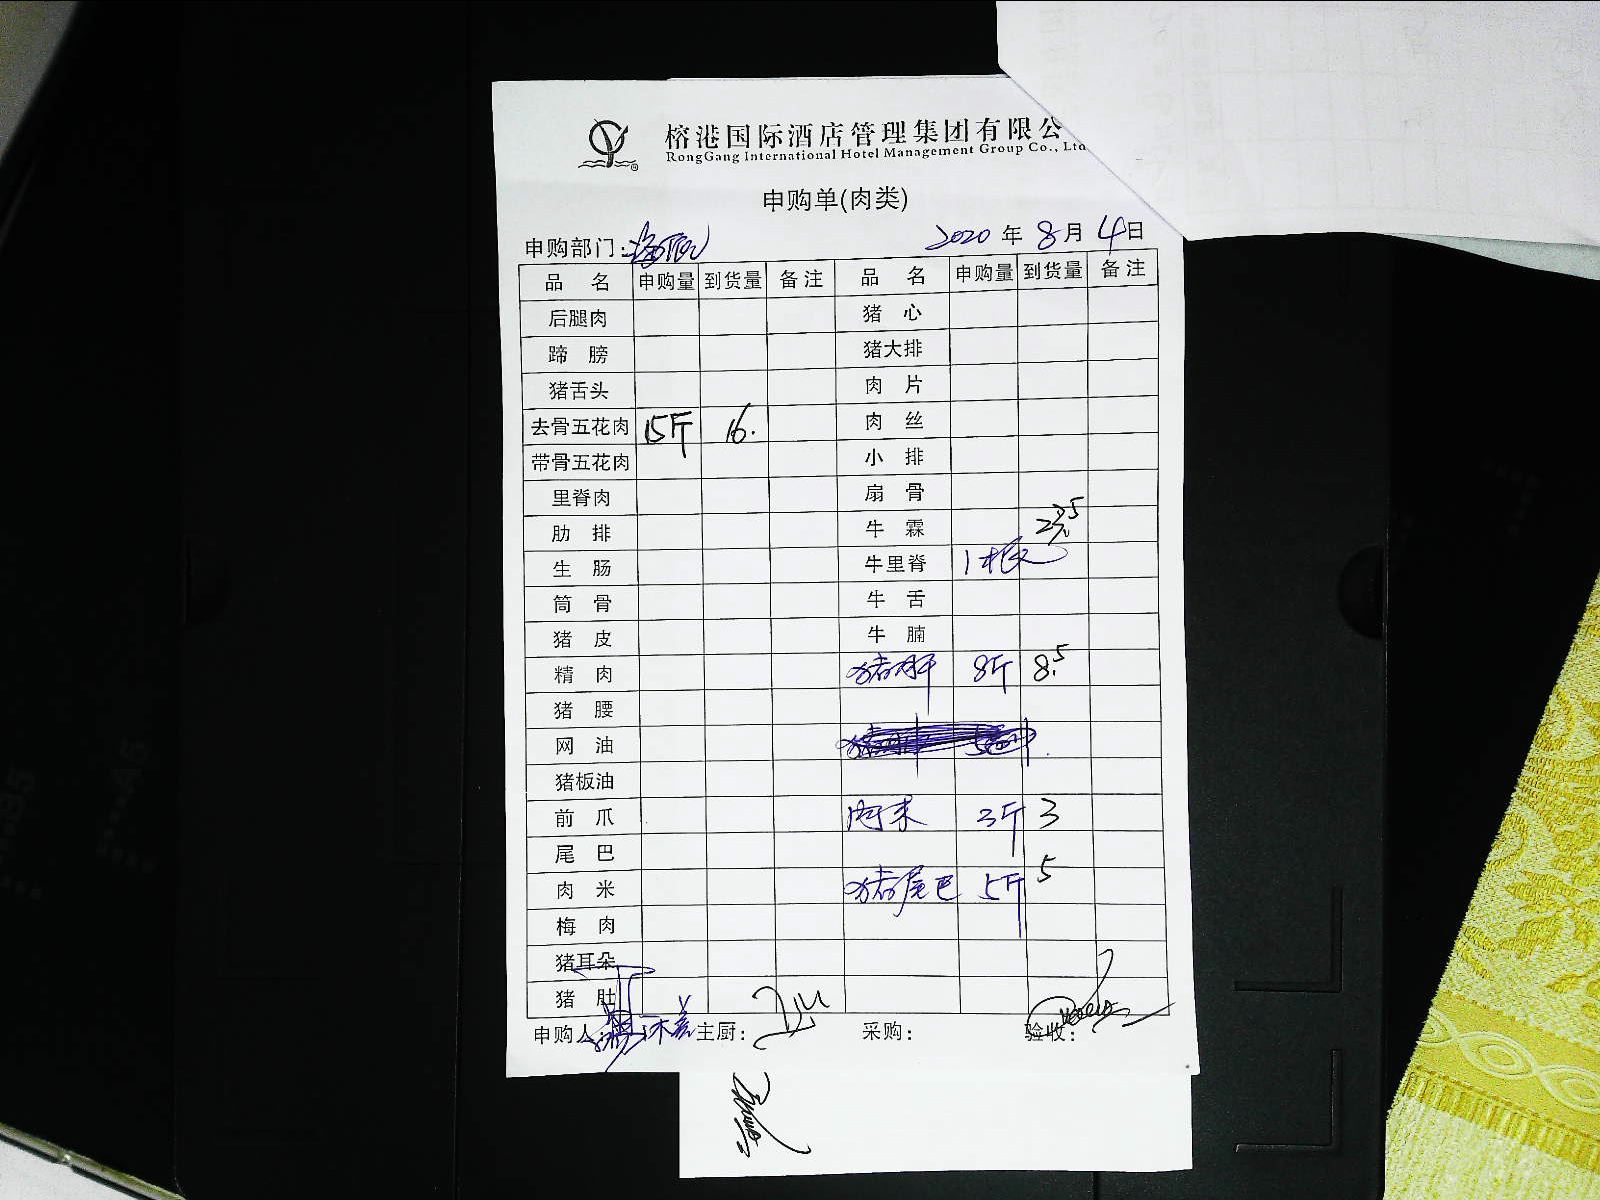 榕港国际酒店管理集团有限公
RongGang International Hotel Management Group Co., Ltd
申购单(肉类)
申购部门:
2020年8月4日
品名 申购量 到货量 备注 品名 申购量 到货量 备注
后腿肉 猪心
蹄膀 猪大排
猪舌头 肉片
去骨五花肉 15斤 16. 肉丝
带骨五花肉 小排
里脊肉 扇骨
肋排 牛霖
生肠 牛里脊 1根
筒骨 牛舌
猪皮 牛腩
精肉 猪肝 8斤 8.5
猪腰
网油
猪板油
前爪 肉末 3斤 3
尾巴
肉米 猪尾巴 5斤 5
梅肉
猪耳朵
猪肚
申购人: 主厨: 采购: 验收: